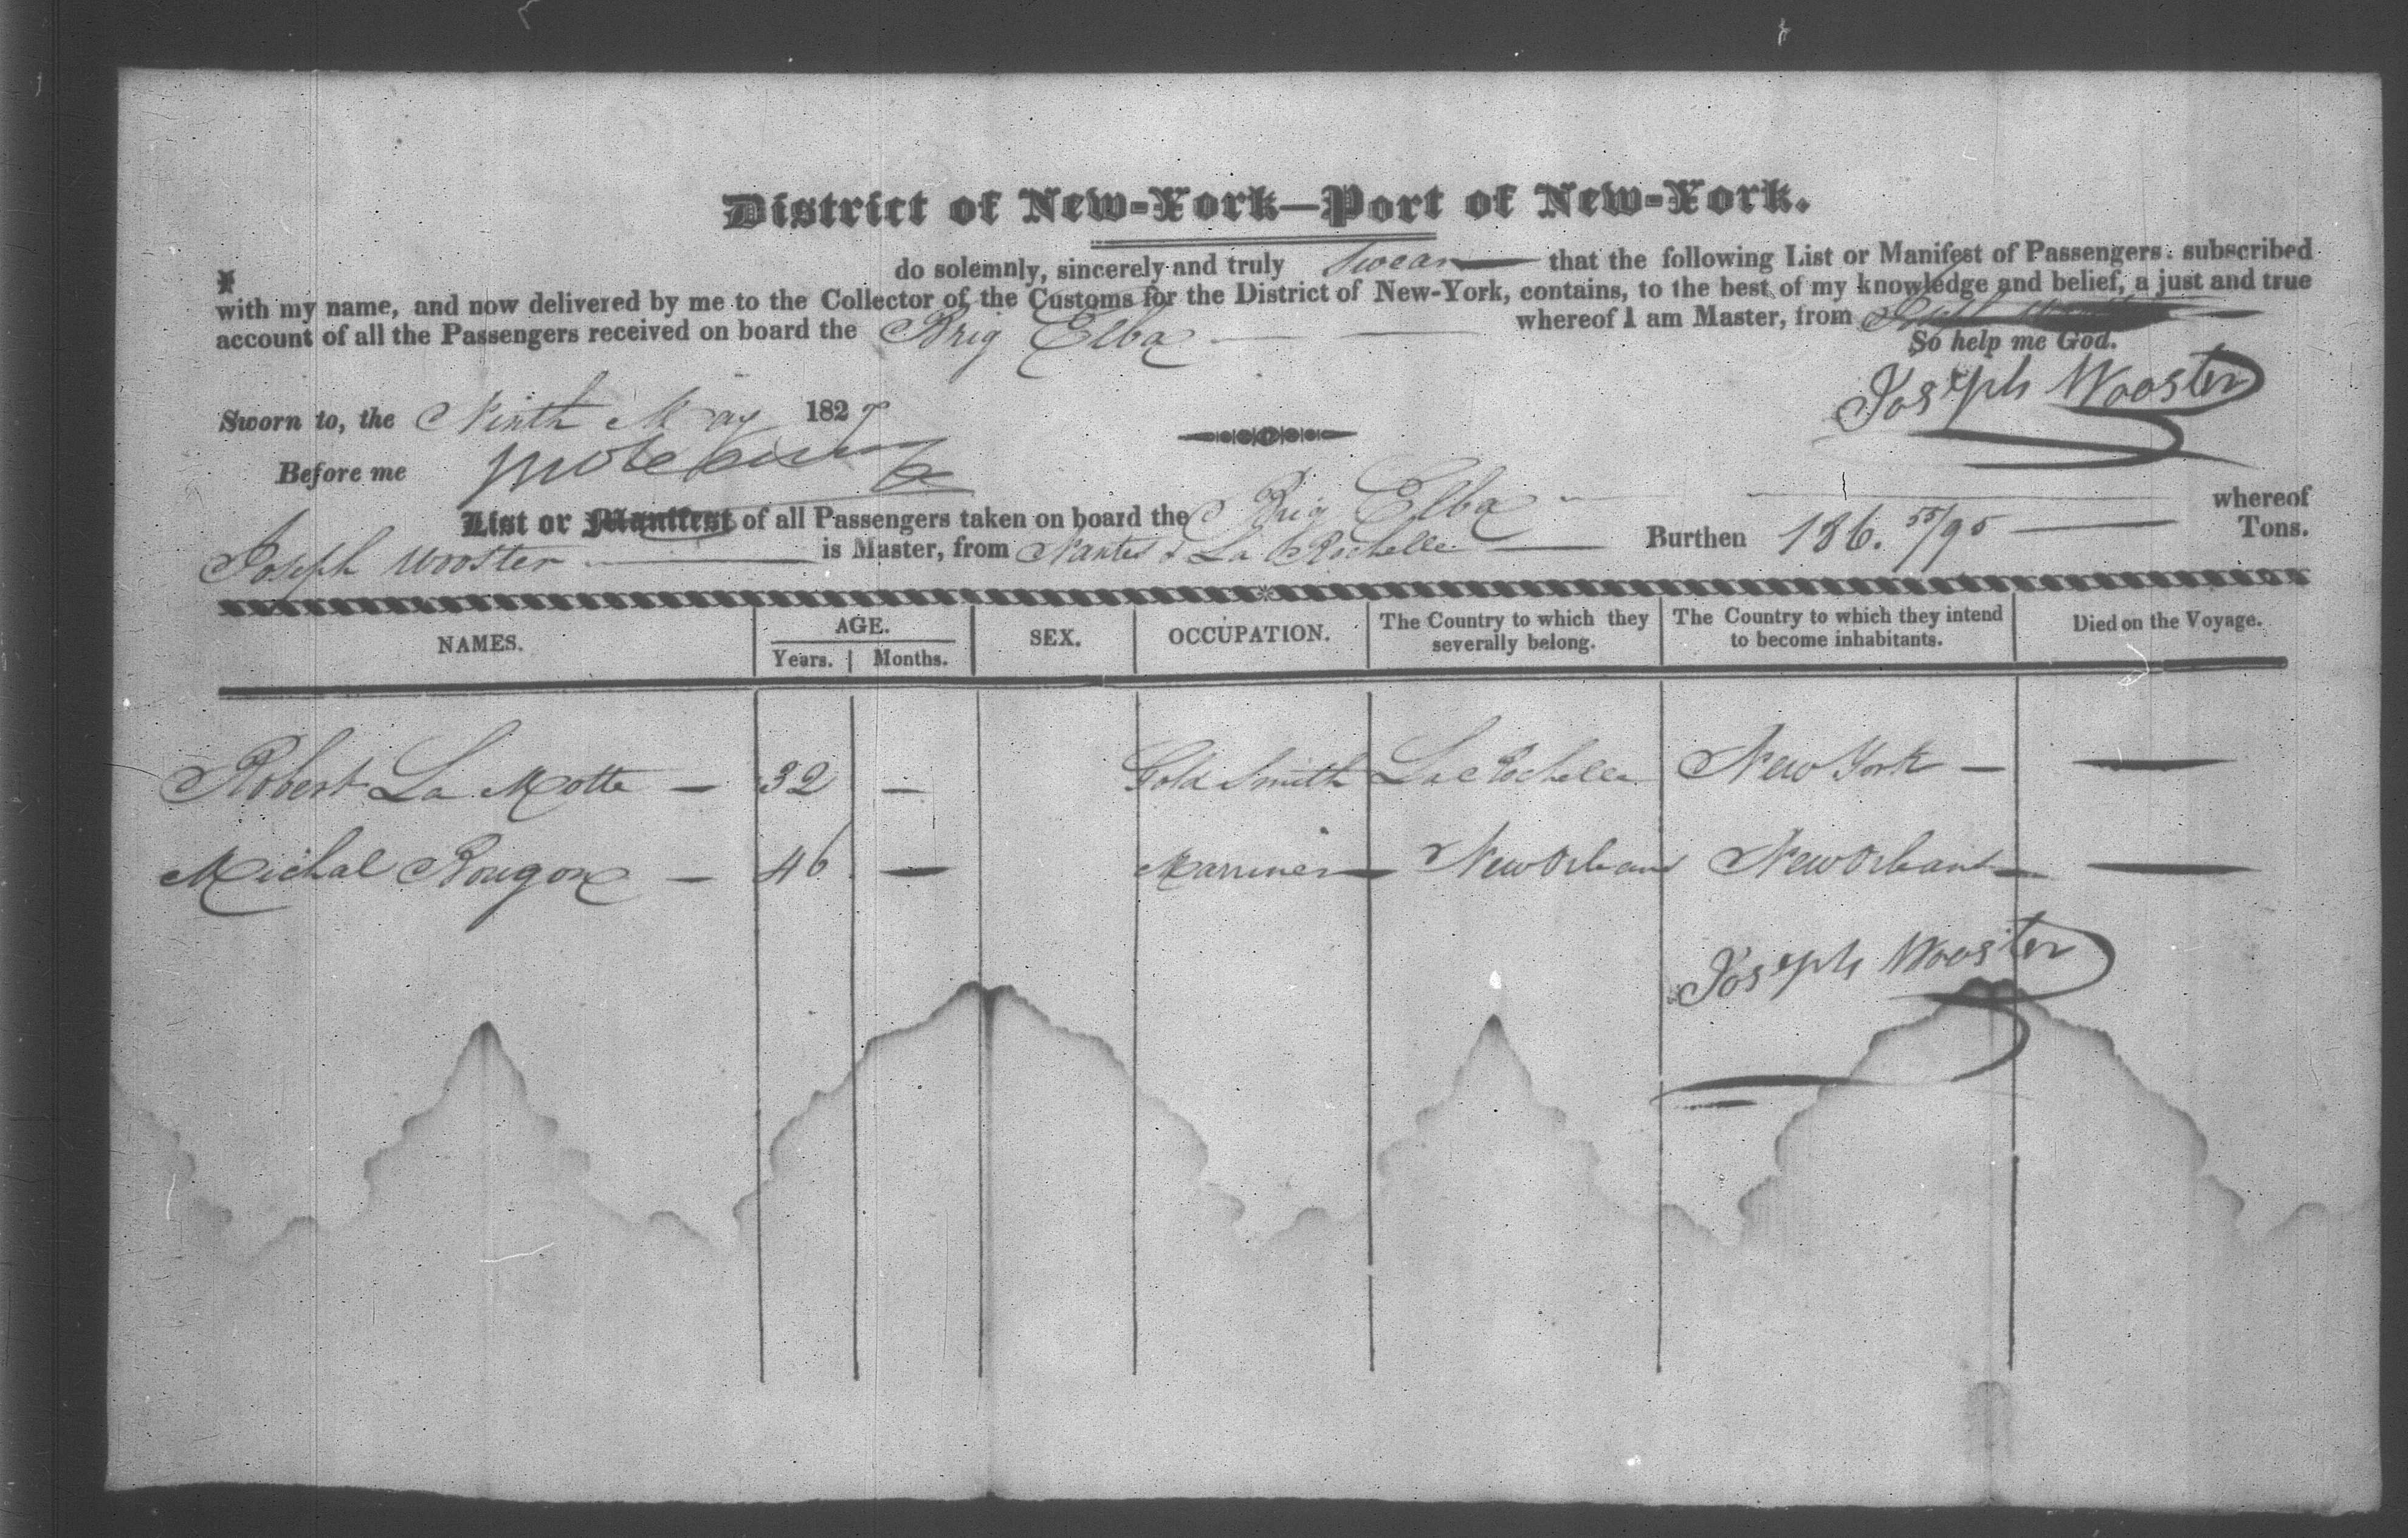 District of New-York—Port of New-York.
I do solemnly, sincerely and truly Swear that the following List or Manifest of Passengers subscribed
with my name, and now delivered by me to the Collector of the Customs for the District of New-York, contains, to the best of my knowledge and belief, a just and true
account of all the Passengers received on board the Brig Elba whereof I am Master, from
So help me God.
Joseph Wooster
Sworn to, the Ninth May 182
Before me
List or Manifest of all Passengers taken on board the Brig Elba whereof
Joseph Wooster is Master, from Nantes & La Rochelle Burthen 186. 55/95 Tons.
NAMES. AGE. Years. Months. SEX. OCCUPATION. The Country to which they severally belong. The Country to which they intend to become inhabitants. Died on the Voyage.
Robert La Motte — 32 — Gold Smith La Rochelle New York — —
Michal Rougon — 46 — Marriner — New Orleans New Orleans — —
Joseph Wooster